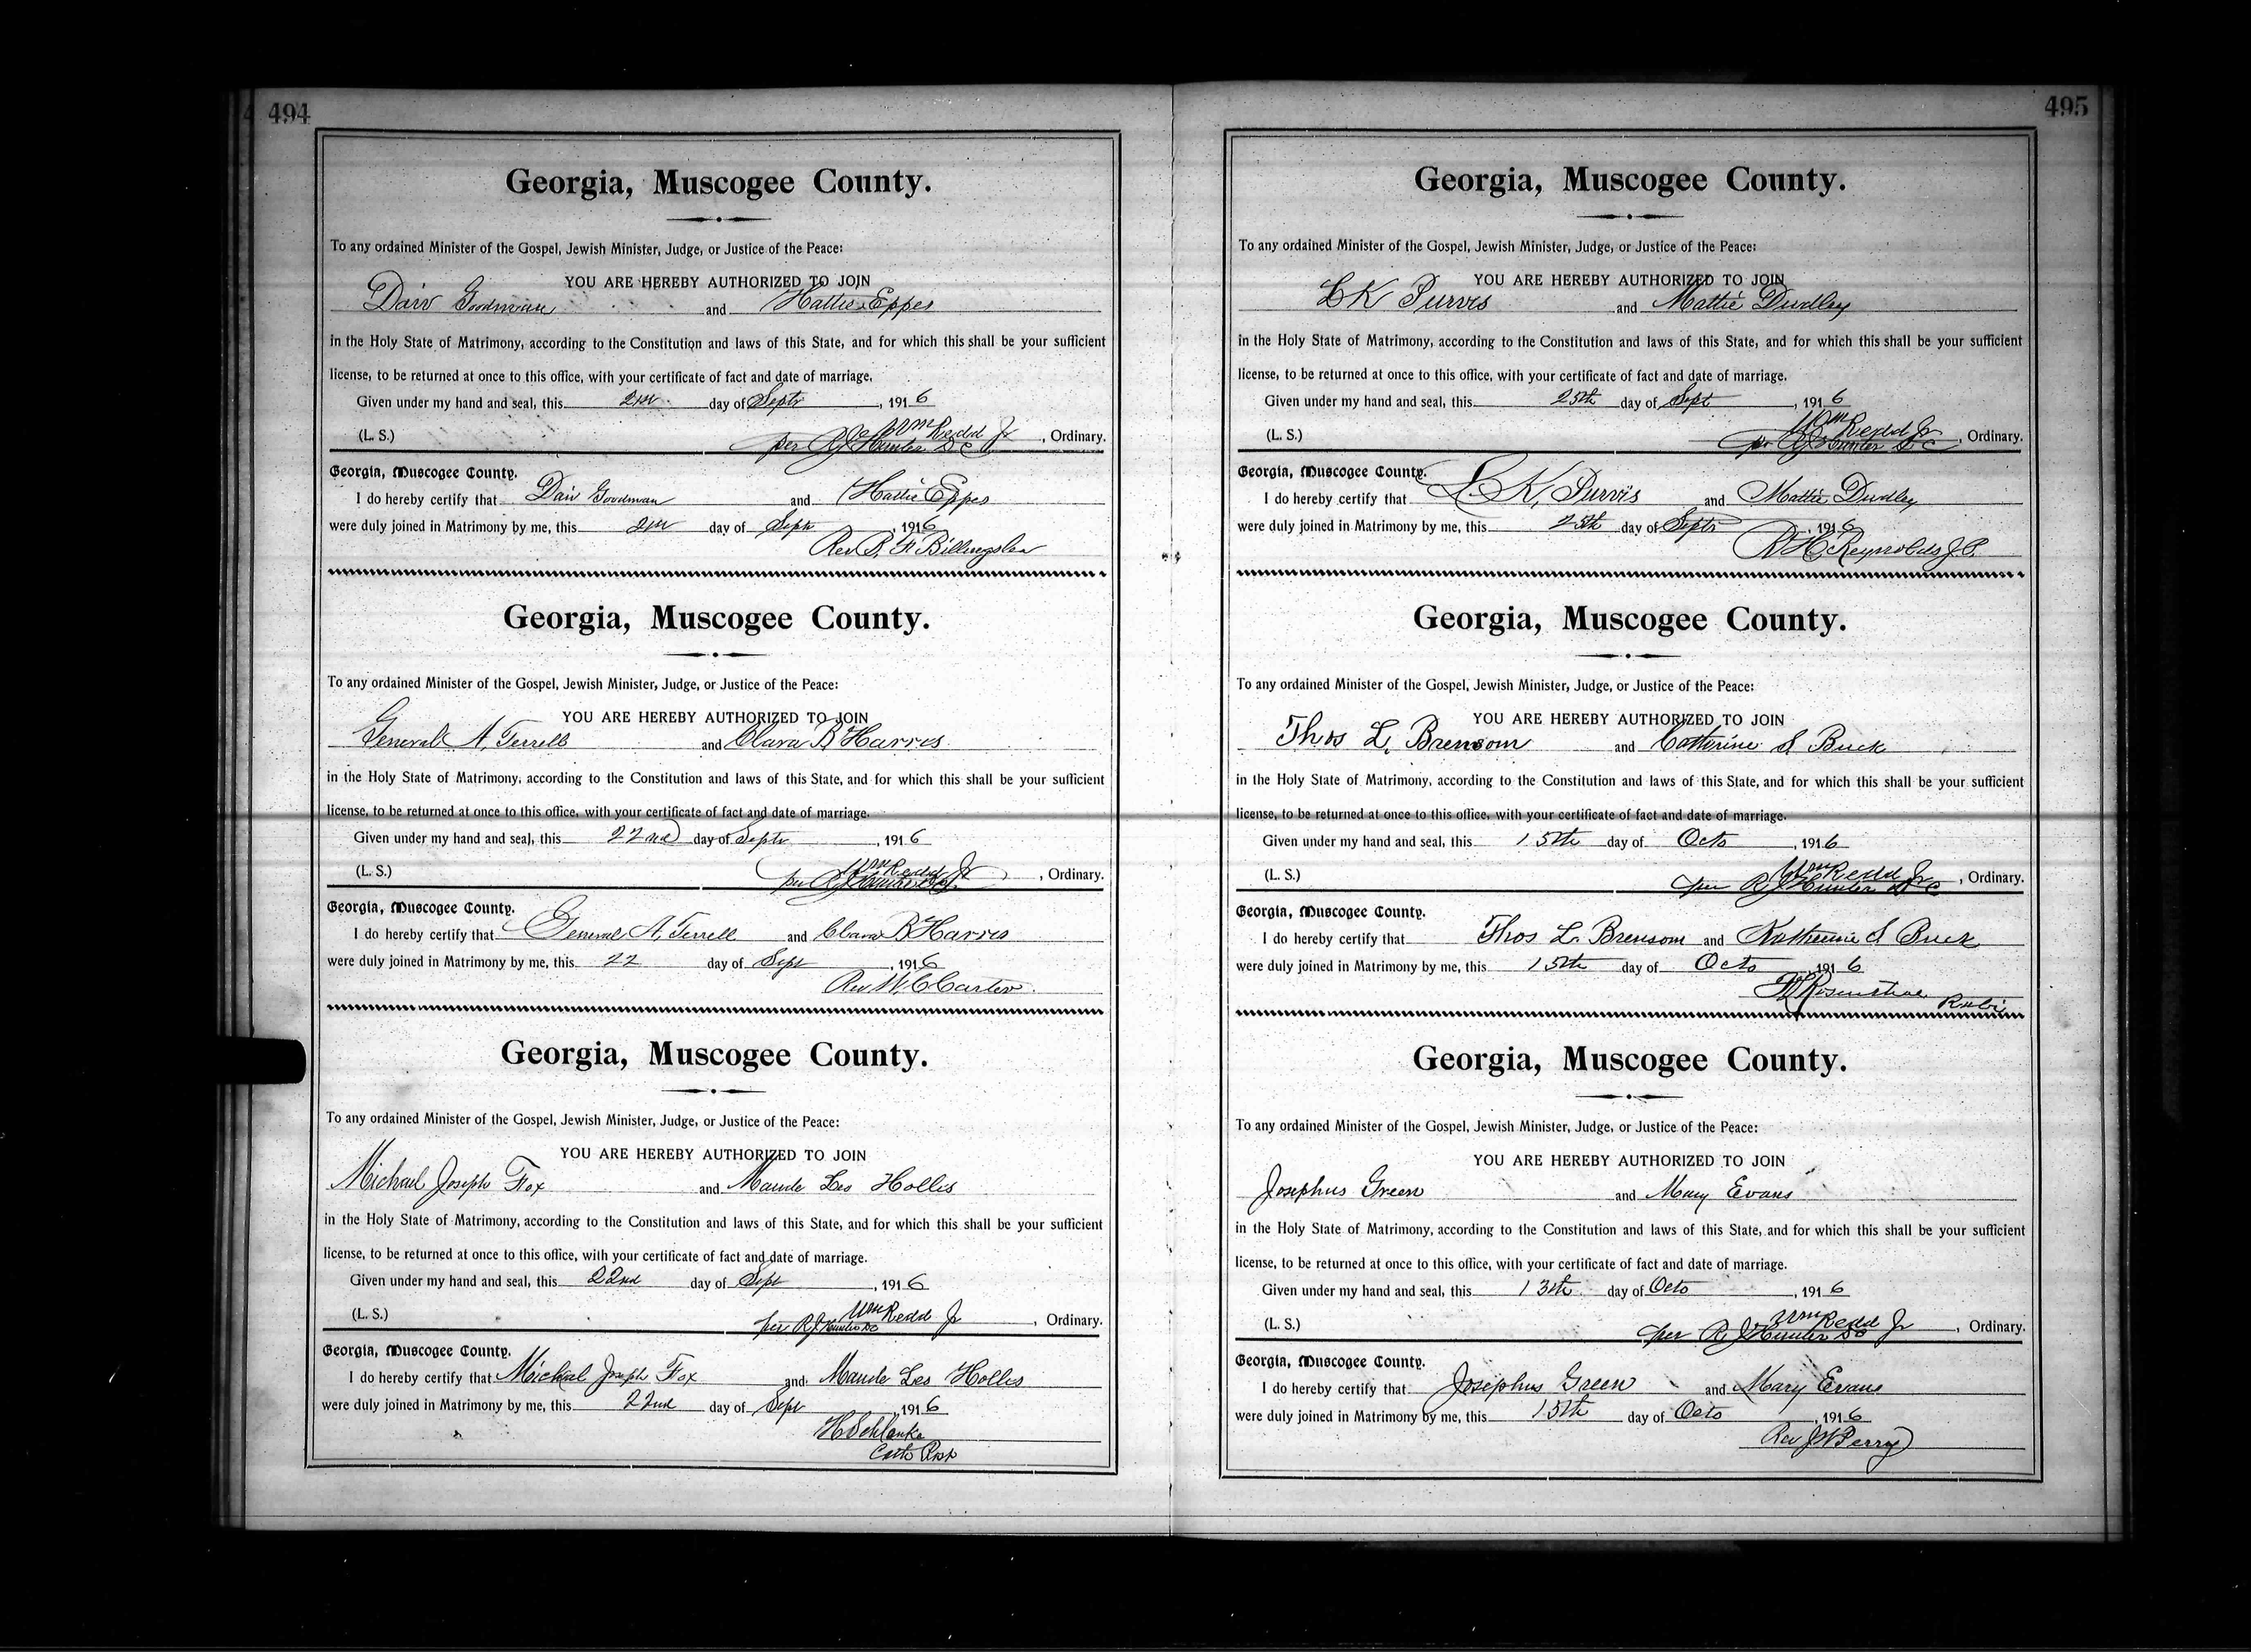 494
Georgia, Muscogee County.
To any ordained Minister of the Gospel, Jewish Minister, Judge, or Justice of the Peace:
YOU ARE HEREBY AUTHORIZED TO JOIN
Goodman and Hattie Eppes
in the Holy State of Matrimony, according to the Constitution and laws of this State, and for which this shall be your sufficient
license, to be returned at once to this office, with your certificate of fact and date of marriage.
Given under my hand and seal, this 21st day of Septr, 1916
(L. S.) Wm Redd Jr
per R J Hunter D C, Ordinary.
Georgia, Muscogee County.
I do hereby certify that Goodman and Hattie Eppes
were duly joined in Matrimony by me, this 21st day of Sept, 1916
Rev Billingslea
Georgia, Muscogee County.
To any ordained Minister of the Gospel, Jewish Minister, Judge, or Justice of the Peace:
YOU ARE HEREBY AUTHORIZED TO JOIN
General A. Terrell and Clara B Harris
in the Holy State of Matrimony, according to the Constitution and laws of this State, and for which this shall be your sufficient
license, to be returned at once to this office, with your certificate of fact and date of marriage.
Given under my hand and seal, this 22nd day of Septr, 1916
(L. S.) Wm Redd Jr
per R J Hunter D C, Ordinary.
Georgia, Muscogee County.
I do hereby certify that General A, Terrell and Clara B Harris
were duly joined in Matrimony by me, this 22 day of Sept, 1916
Rev W. C Carter
Georgia, Muscogee County.
To any ordained Minister of the Gospel, Jewish Minister, Judge, or Justice of the Peace:
YOU ARE HEREBY AUTHORIZED TO JOIN
Michael Joseph Fox and Maude Leo Hollis
in the Holy State of Matrimony, according to the Constitution and laws of this State, and for which this shall be your sufficient
license, to be returned at once to this office, with your certificate of fact and date of marriage.
Given under my hand and seal, this 22nd day of Sept, 1916
(L. S.) Wm Redd Jr
per R J Hunter DC, Ordinary.
Georgia, Muscogee County.
I do hereby certify that Michael Joseph Fox and Maude Leo Hollis
were duly joined in Matrimony by me, this 22nd day of Sept, 1916
H Schlanke
495
Georgia, Muscogee County.
To any ordained Minister of the Gospel, Jewish Minister, Judge, or Justice of the Peace:
YOU ARE HEREBY AUTHORIZED TO JOIN
K Purvis and Mattie Dudley
in the Holy State of Matrimony, according to the Constitution and laws of this State, and for which this shall be your sufficient
license, to be returned at once to this office, with your certificate of fact and date of marriage.
Given under my hand and seal, this 25th day of Sept, 1916
(L. S.) Wm Redd Jr
per R J Hunter D C, Ordinary.
Georgia, Muscogee County.
I do hereby certify that K, Purvis and Mattie Dudley
were duly joined in Matrimony by me, this 25th day of Septr, 1916
Reynolds J. P.
Georgia, Muscogee County.
To any ordained Minister of the Gospel, Jewish Minister, Judge, or Justice of the Peace:
YOU ARE HEREBY AUTHORIZED TO JOIN
Thos L. Brensom and Catherine S Buck
in the Holy State of Matrimony, according to the Constitution and laws of this State, and for which this shall be your sufficient
license, to be returned at once to this office, with your certificate of fact and date of marriage.
Given under my hand and seal, this 15th day of Octo, 1916
(L. S.) Wm Redd Jr
per R J Hunter D C, Ordinary.
Georgia, Muscogee County.
I do hereby certify that Thos L. Brensom and Katherine S Buck
were duly joined in Matrimony by me, this 15th day of Octo 1916
Rosenthal
Rabi
Georgia, Muscogee County.
To any ordained Minister of the Gospel, Jewish Minister, Judge, or Justice of the Peace:
YOU ARE HEREBY AUTHORIZED TO JOIN
Josephus Green and Mary Evans
in the Holy State of Matrimony, according to the Constitution and laws of this State, and for which this shall be your sufficient
license, to be returned at once to this office, with your certificate of fact and date of marriage.
Given under my hand and seal, this 13th day of Octo, 1916
(L. S.) Wm Redd Jr
per R J Hunter DC, Ordinary.
Georgia, Muscogee County.
I do hereby certify that Josephus Green and Mary Evans
were duly joined in Matrimony by me, this 15th day of Octo, 1916
Rev J W Perry